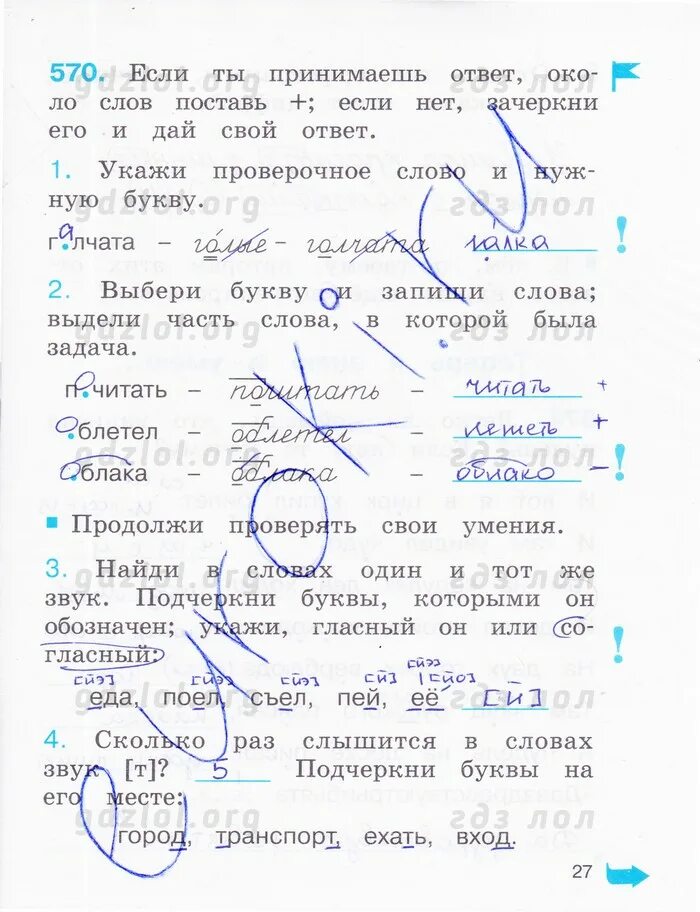 570. Если ты принимаешь ответ, око-
ло слов поставь +; если нет, зачеркни
его и дай свой ответ.
1. Укажи проверочное слово и нуж-
ную букву.
галчата – голые – голчата галка !
2. Выбери букву о и запиши слова;
выдели часть слова, в которой была
задача.
почитать – почитать – читать +
облетел – облетел – лететь +
облака – облака – облако – !
Продолжи проверять свои умения.
3. Найди в словах один и тот же
звук. Подчеркни буквы, которыми он
обозначен; укажи, гласный он или со-
гласный: !
[йэ] [йэ] [йэ] [й] [йэ] [йо]
еда, поел, съел, пей, её [й]
4. Сколько раз слышится в словах
звук [т]? 5 Подчеркни буквы на
его месте:
город, транспорт, ехать, вход.
27
gdzlol.org гдз лол